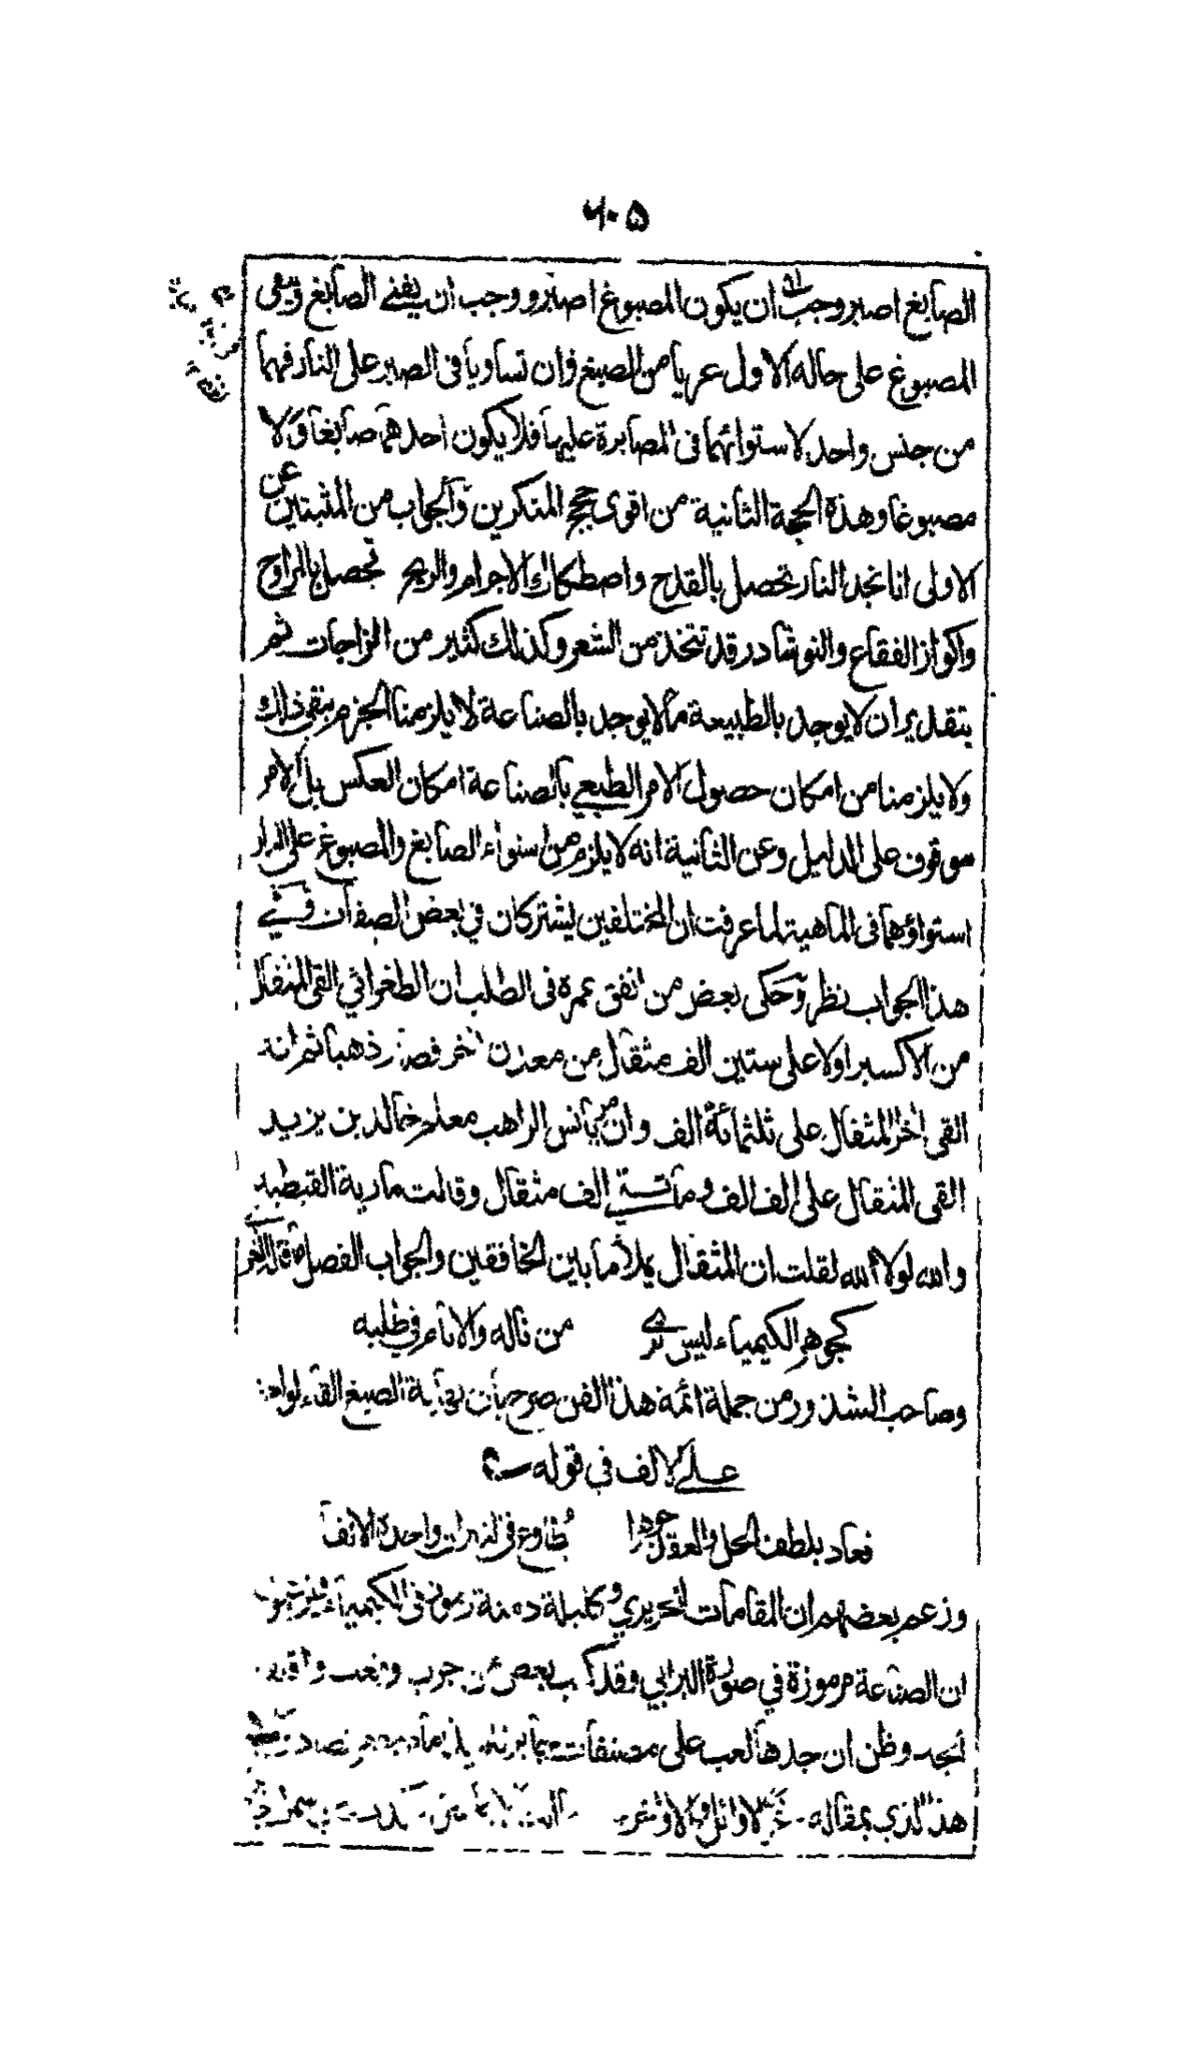 ٦٠۵
الصابغ اصبر وجب ان يكون المصبوغ اصبر ووجب ان يفنے الصابغ ويبقى
المصبوغ على حاله الاول عريا من الصبغ وان تساويا فى الصبر على النار فهما
من جنس واحد لاستوائهما فى المصابرة عليها فلا يكون احدهما صابغا ولا
مصبوغا وهذه الحجة الثانية من اقوى حجج المنكرين والجواب من المثبتين عن
الاولى انا نجد النار تحصل بالقدح واصطكاك الاجرام والريح تحصل بالمراوح
واكواز الفقاع والنوشادر قد تتخذ من الشعر وكذلك كثير من الزاجات ثم
بتقدير ان لا يوجد بالطبيعة ما لا يوجد بالصناعة لا يلزمنا الجزم بنفى ذلك
ولا يلزمنا من امكان حصول الامر الطبعي بالصناعة امكان العكس بل الامر
موقوف على الدليل وعن الثانية انه لا يلزم من استواء الصابغ والمصبوغ على النار
استواؤهما فى الماهية لما عرفت ان المختلفين يشتركان في بعض الصفات وفے
هذا الجواب نظر وحكى بعض من انفق عمره فى الطلب ان الطغرائي القى المثقال
من الاكسير اولا على ستين الف مثقال من معدن اخر فصار ذهبا ثم انه
القى اخر المثقال على ثلثمائة الف وان مريانس الراهب معلم خالد بن يزيد
القى المثقال على الف الف ومائتے الف مثقال وقالت مارية القبطية
والله لولا الله لقلت ان المثقال يملأ ما بين الخافقين والجواب الفصل ما قاله الغزي
كجوهر الكيمياء ليس ترے من ناله والانام في طلبه
وصاحب الشذور من جملة ائمة هذا الفن صرح بان نهاية الصبغ القاء الواحد
علے الالف في قوله
فعاد بلطف الحل والعقد جوهرا يطاوع فى النيران واحده الالفا
وزعم بعضهم ان المقامات للحريري وكليلة ودمنة رموز فى الكيمياء
ان الصناعة مرموزة في صورة البرابي وقد كتب بعض من جرب وتعب
وظن ان جدها لعب على مصنفات
هذا الذي بمقاله غر الاوائل والاواخر